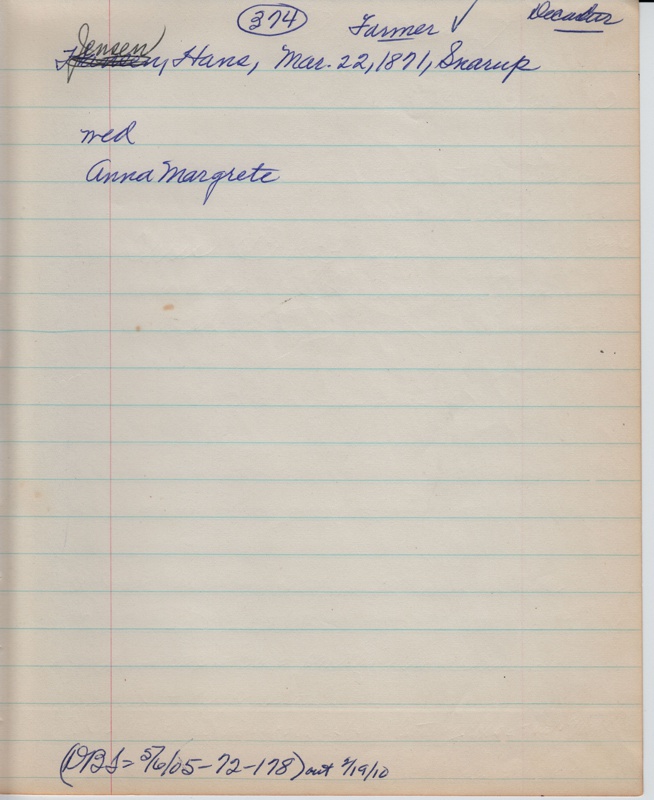 374
Farmer ✓
Decatur
Jensen
Hansen, Hans, Mar. 22, 1871, Snarup
wed
Anna Margrete
(DBS = 5/6/05-72-178) out 2/19/10